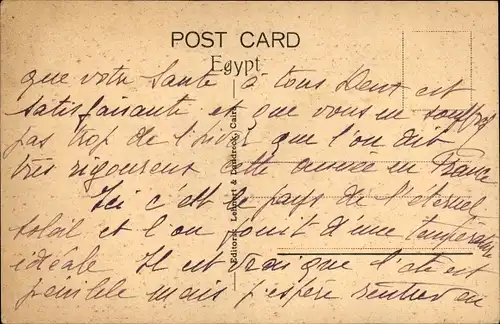 POST CARD
Egypt
que votre Santé à tous deux est
satisfaisante et que vous ne souffrez
pas trop de l'hiver que l'on dit
très rigoureux cette année en France
Ici c'est le pays de l'éternel
soleil et l'on jouit d'une température
idéale. Il est vrai que l'été est
pénible mais j'espère rentrer en
Editors. Lehnert & Landrock, Cairo